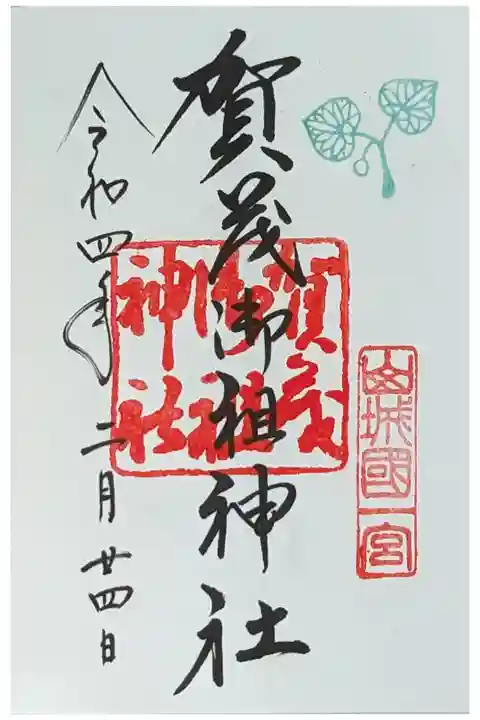 山城國一宮
賀茂御祖神社
賀茂
御祖
神社
令和四年 二月廿四日